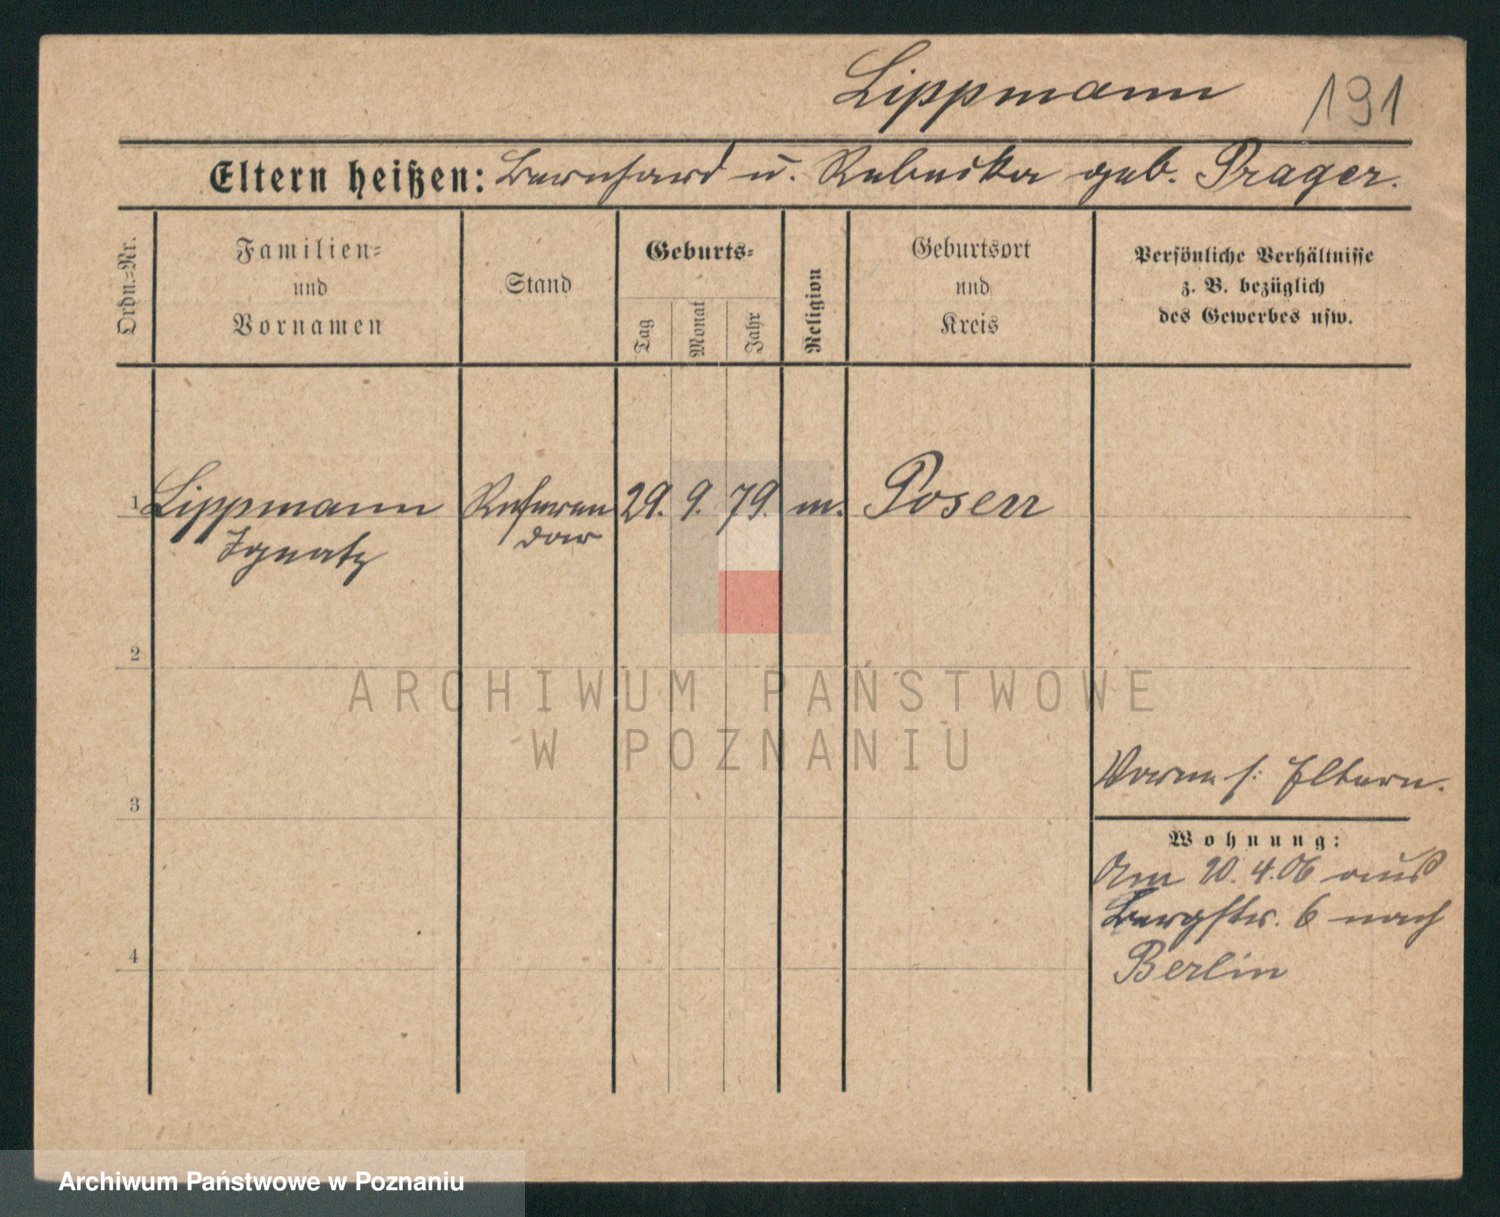 Lippmann 191
Eltern heißen: Bernhard u. Rebecka geb. Prager.
Ordn.=Nr.
Familien=
und
Vornamen
Stand
Geburts=
Tag
Monat
Jahr
Religion
Geburtsort
und
Kreis
Persönliche Verhältnisse
z. B. bezüglich
des Gewerbes usw.
1 Lippmann Referen 29. 9. 79. m. Posen
Ignatz dar
2
ARCHIWUM PAŃSTWOWE
W POZNANIU
3
Eltern.
Wohnung:
Am 20.4.06 aus
Bergstr. 6 nach
4
Berlin
Archiwum Państwowe w Poznaniu